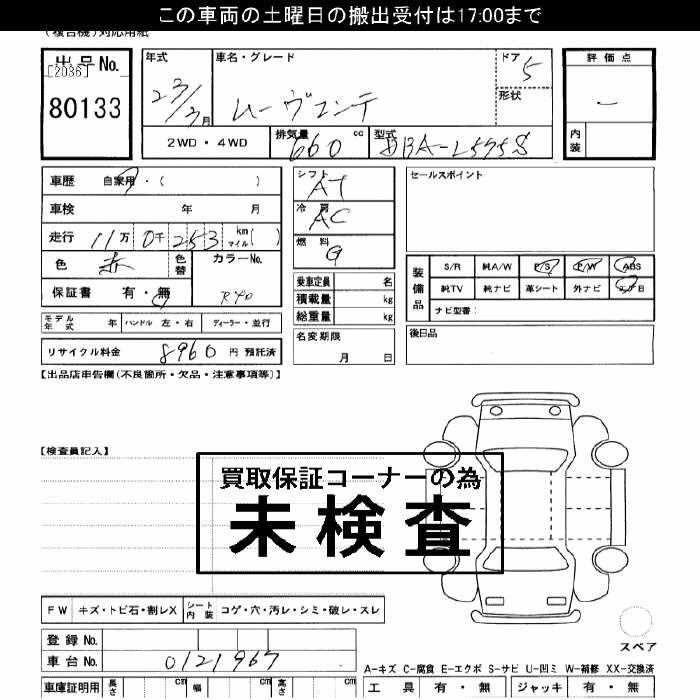 この車両の土曜日の搬出受付は17:00まで
(複合機)対応用紙
出品No. [2036] 80133
年式 23/3月
車名・グレード ムーヴコンテ
ドア 5
形状
評価点 ー
内装
2WD・4WD
排気量 660 cc
型式 DBA-L575S
車歴 自家用・( )
車検 年 月
走行 11万 0千 253 km マイル( )
色 赤 色替
カラーNo. R40
保証書 有・無
モデル年式 年 ハンドル 左・右 ディーラー・並行
リサイクル料金 8960 円 預託済
シフト AT
冷房 AC
燃料 G
乗車定員 名
積載量 kg
総重量 kg
名変期限 月 日
セールスポイント
装備品 S/R 純A/W P/S P/W ABS
純TV 純ナビ 革シート 外ナビ エアB
ナビ型番:
後日品
【出品店申告欄(不良箇所・欠品・注意事項等)】
【検査員記入】
買取保証コーナーの為
未検査
FW キズ・トビ石・割レX シート内装 コゲ・穴・汚レ・シミ・破レ・スレ
スペア
登録No.
車台No. 0121967
車庫証明用 長さ cm 幅 cm 高さ cm
A-キズ C-腐食 E-エクボ S-サビ U-凹ミ W-補修 XX-交換済
工具 有・無 ジャッキ 有・無